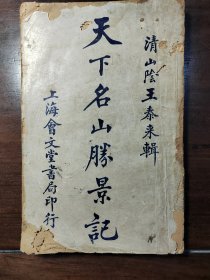 清山陰王泰来輯
天下名山勝景記
上海會文堂書局印行